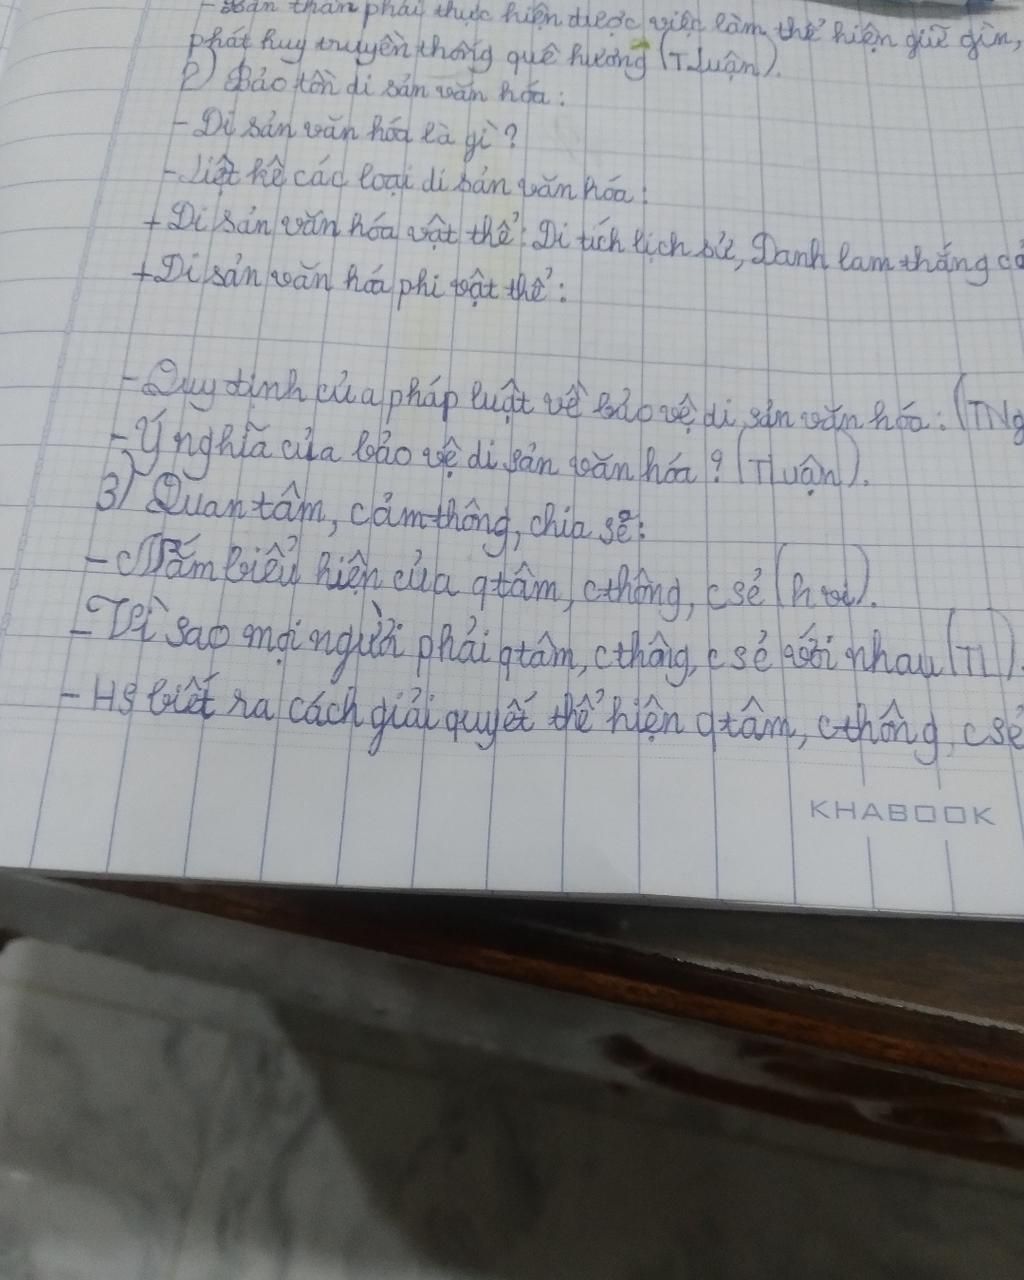 - Bản thân phải thực hiện được việc làm thể hiện giữ gìn,
phát huy truyền thống quê hương (T.Luận).
2) Bảo tồn di sản văn hóa:
- Di sản văn hóa là gì?
- Liệt kê các loại di sản văn hóa:
+ Di sản văn hóa vật thể: Di tích lịch sử, Danh lam thắng cả
+ Di sản văn há phi vật thể:
- Quy định của pháp luật về bảo vệ di sản văn hóa: (TNg
- Ý nghĩa của bảo vệ di sản văn hóa? (Tluận).
3) Quan tâm, cảm thông, chia sẽ:
- Nắm biểu hiện của qtâm, cthông, c sẻ
- Vì sao mọi người phải qtâm, cthông, c sẻ với nhau (Tl).
- HS biết ra cách giải quyết thể hiện qtâm, cthông, c sẻ
KHABOOK